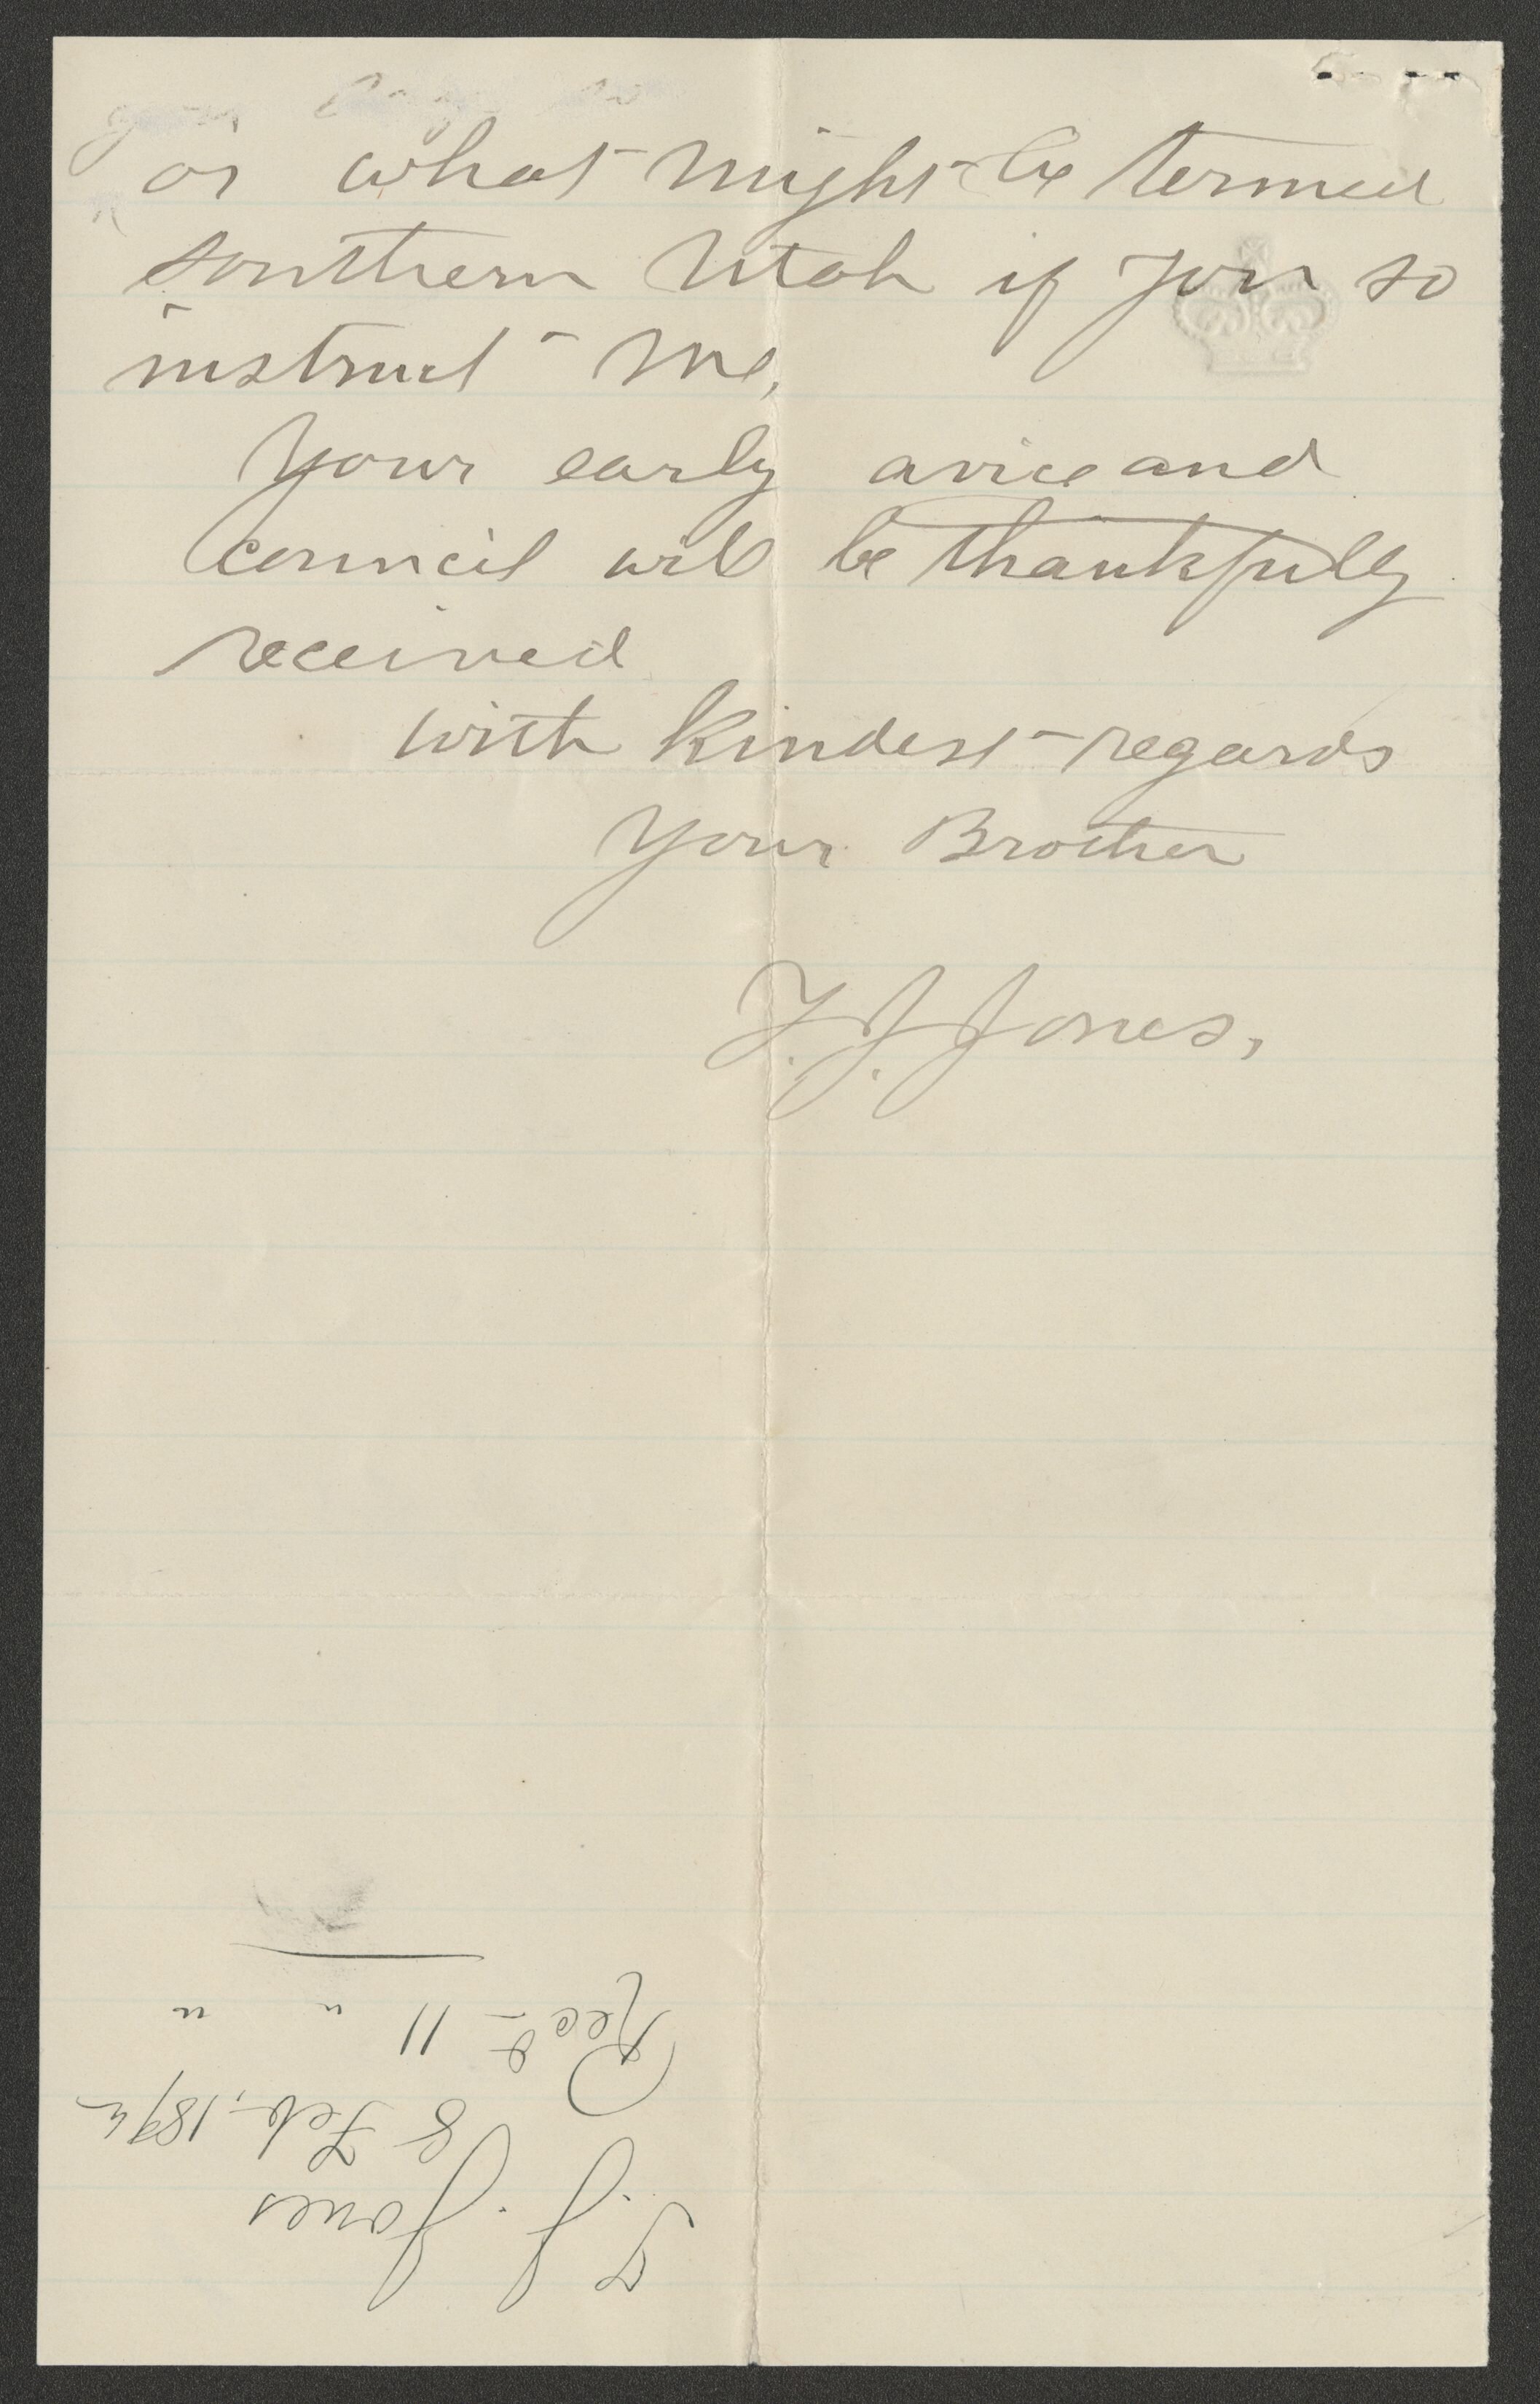 or what might be termed
southern Utah if you so
instruct me,
Your early avice and
council will be thankfully
received
with kindest regards
Your Brother
T. J. Jones,
T. J. Jones
8 Feb. 1892
Recd 11 " "